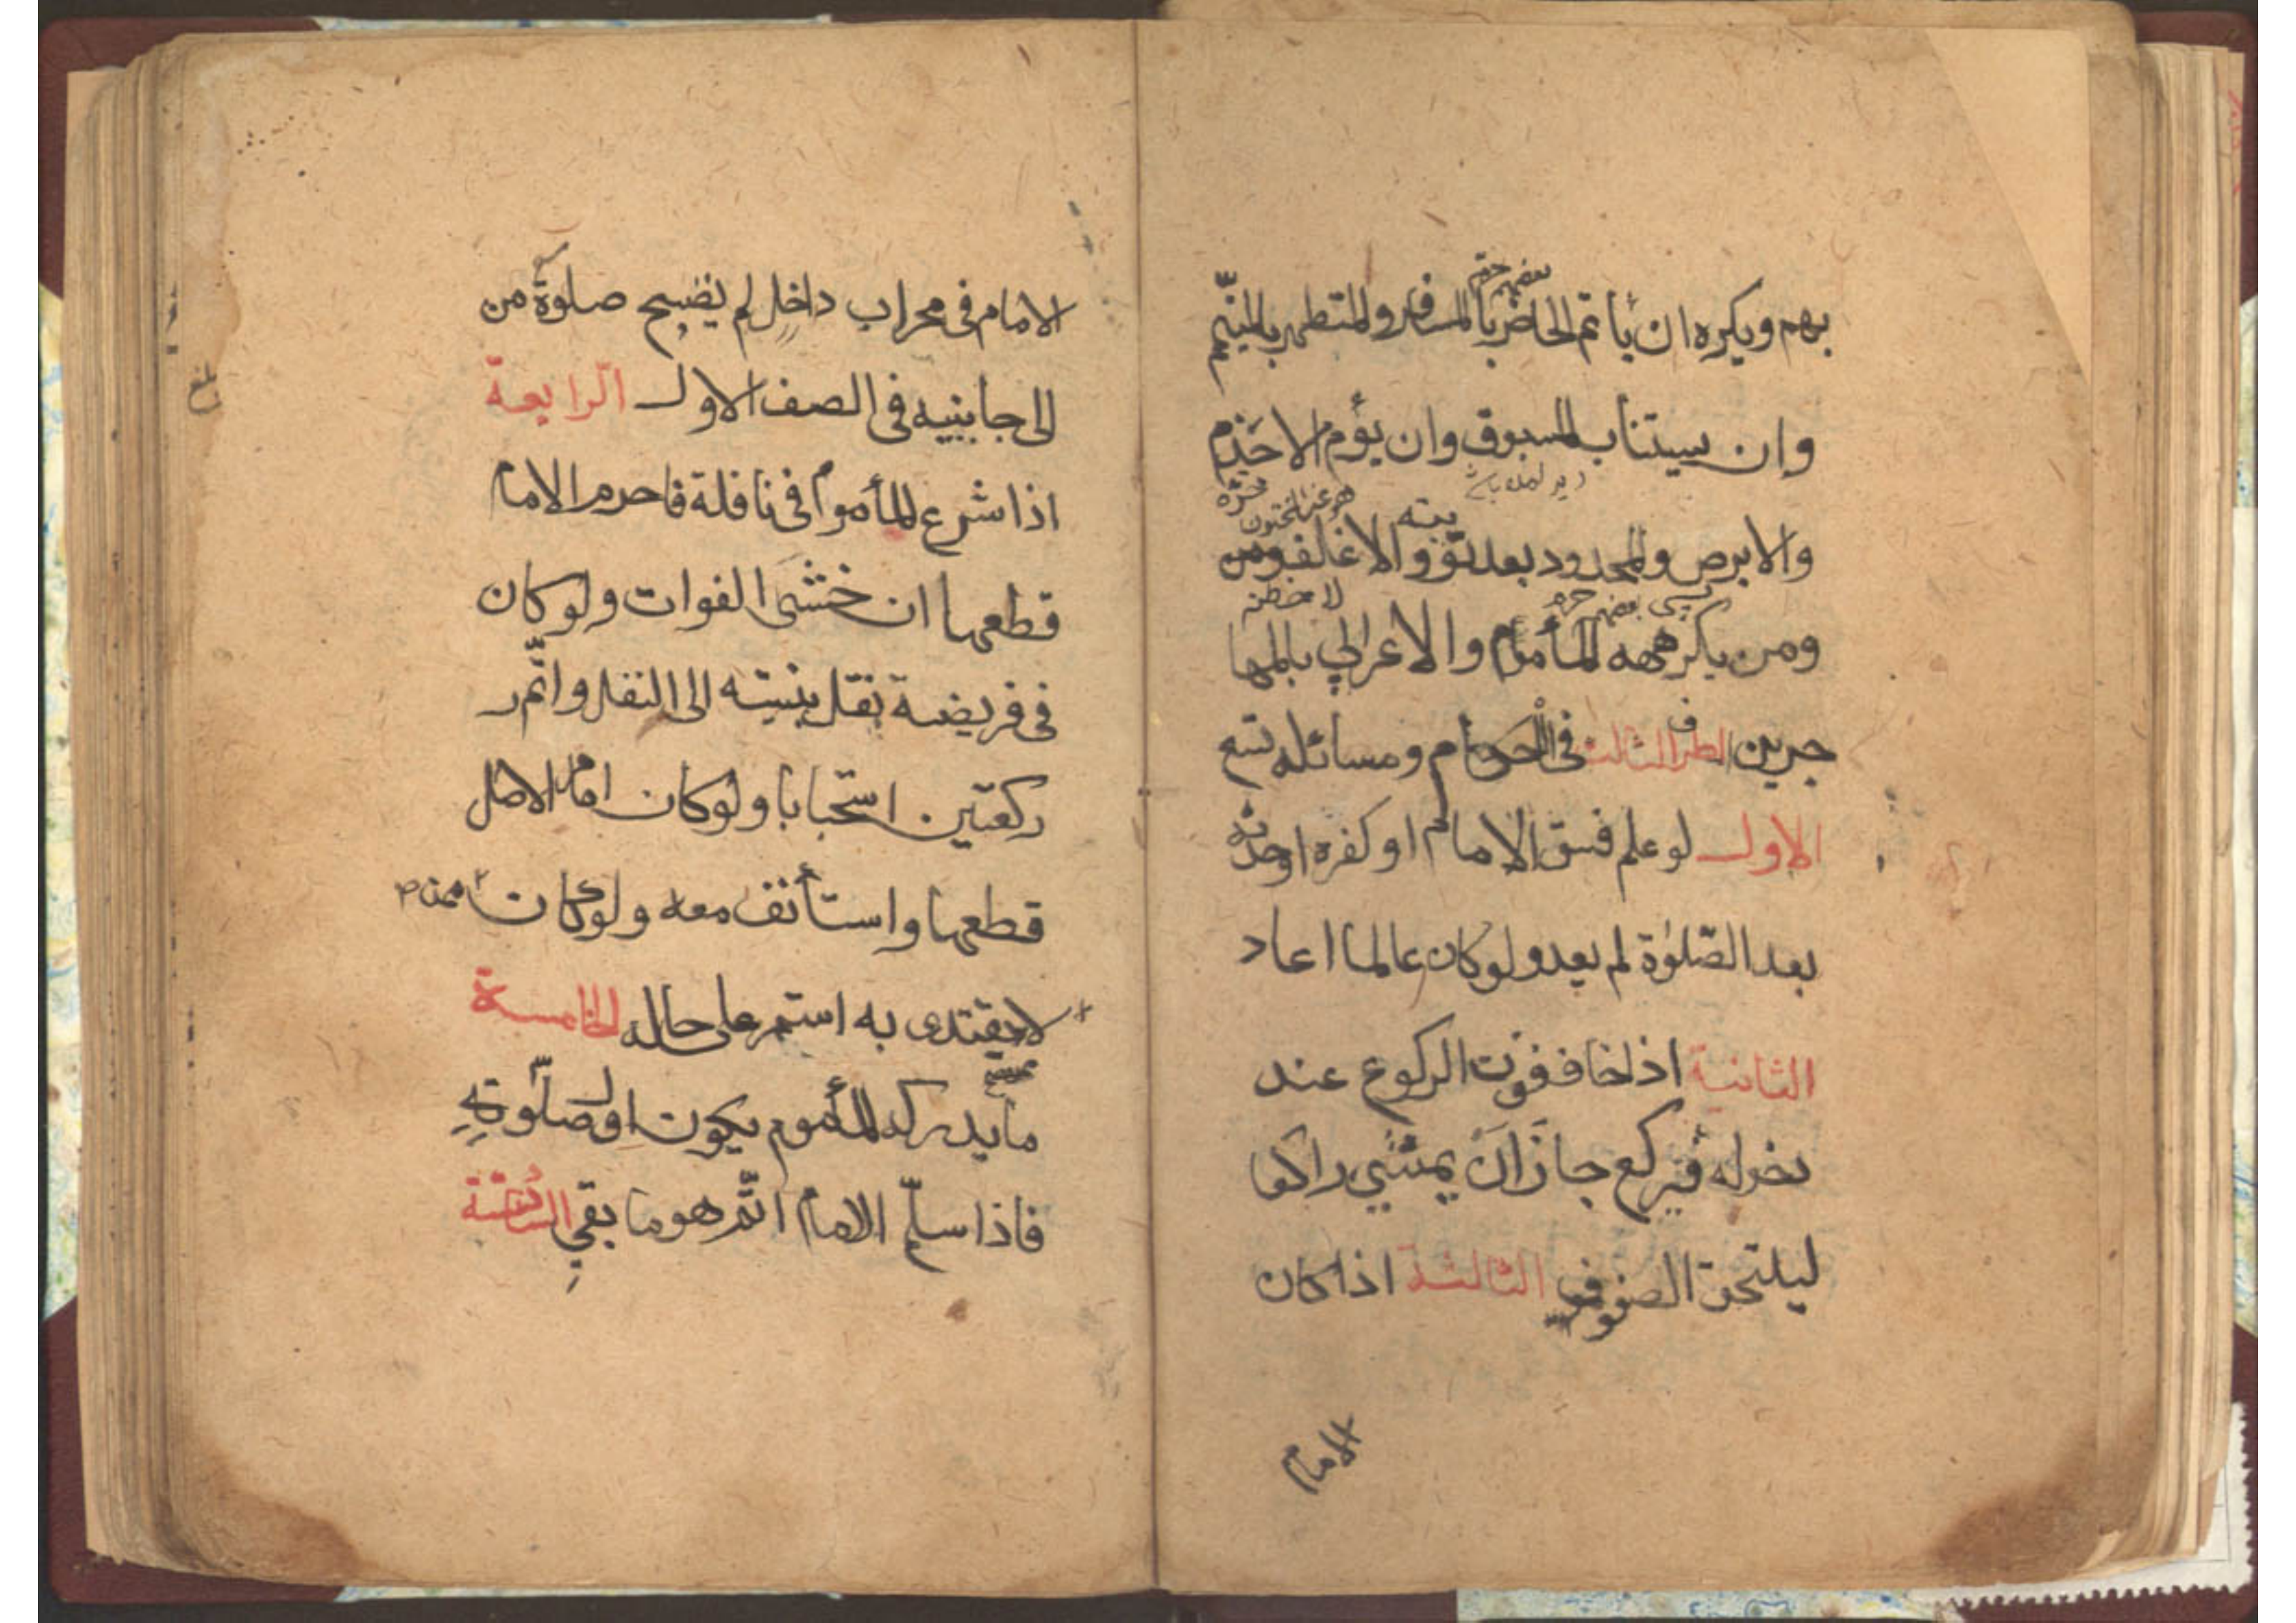 بهم ويكره ان يأتم الحاضر بالمسافر والمتطهر بالمتيمّم
وان يستناب المسبوق وان يؤم الاجذم
والابرص والمحدود بعد توبته والاغلف ومن
ومن يكرهه المأموم والاعرابي بالمها
جرين الطرف الثالث فى الحكام ومسائله تسع
الاول لو علم فسق الامام او كفره او حدثه
بعد الصّلوة لم يعد ولو كان عالما اعاد
الثانية اذا خاف فوت الركوع عند
دخوله فيركع جاز ان يمشي راكعا
ليلتحق الصفوف الثالثة اذا كان
الامام
الامام فى محراب داخل لم يصح صلوة من
الى جانبيه فى الصف الاول الرابعة
اذا شرع المأموم فى نافلة فاحرم الامام
قطعها ان خشى الفوات ولو كان
فى فريضة نقل بنيته الى النفل واتّم ر
ركعتين استحبابا ولو كان امام الاصل
قطعها واستأنف معه ولو كان ممن
لا يقتدى به استمر على حاله الخامسة
ما يدركه المأموم يكون اول صلوته
فاذا سلّم الامام اتّم هو ما بقي السادسة